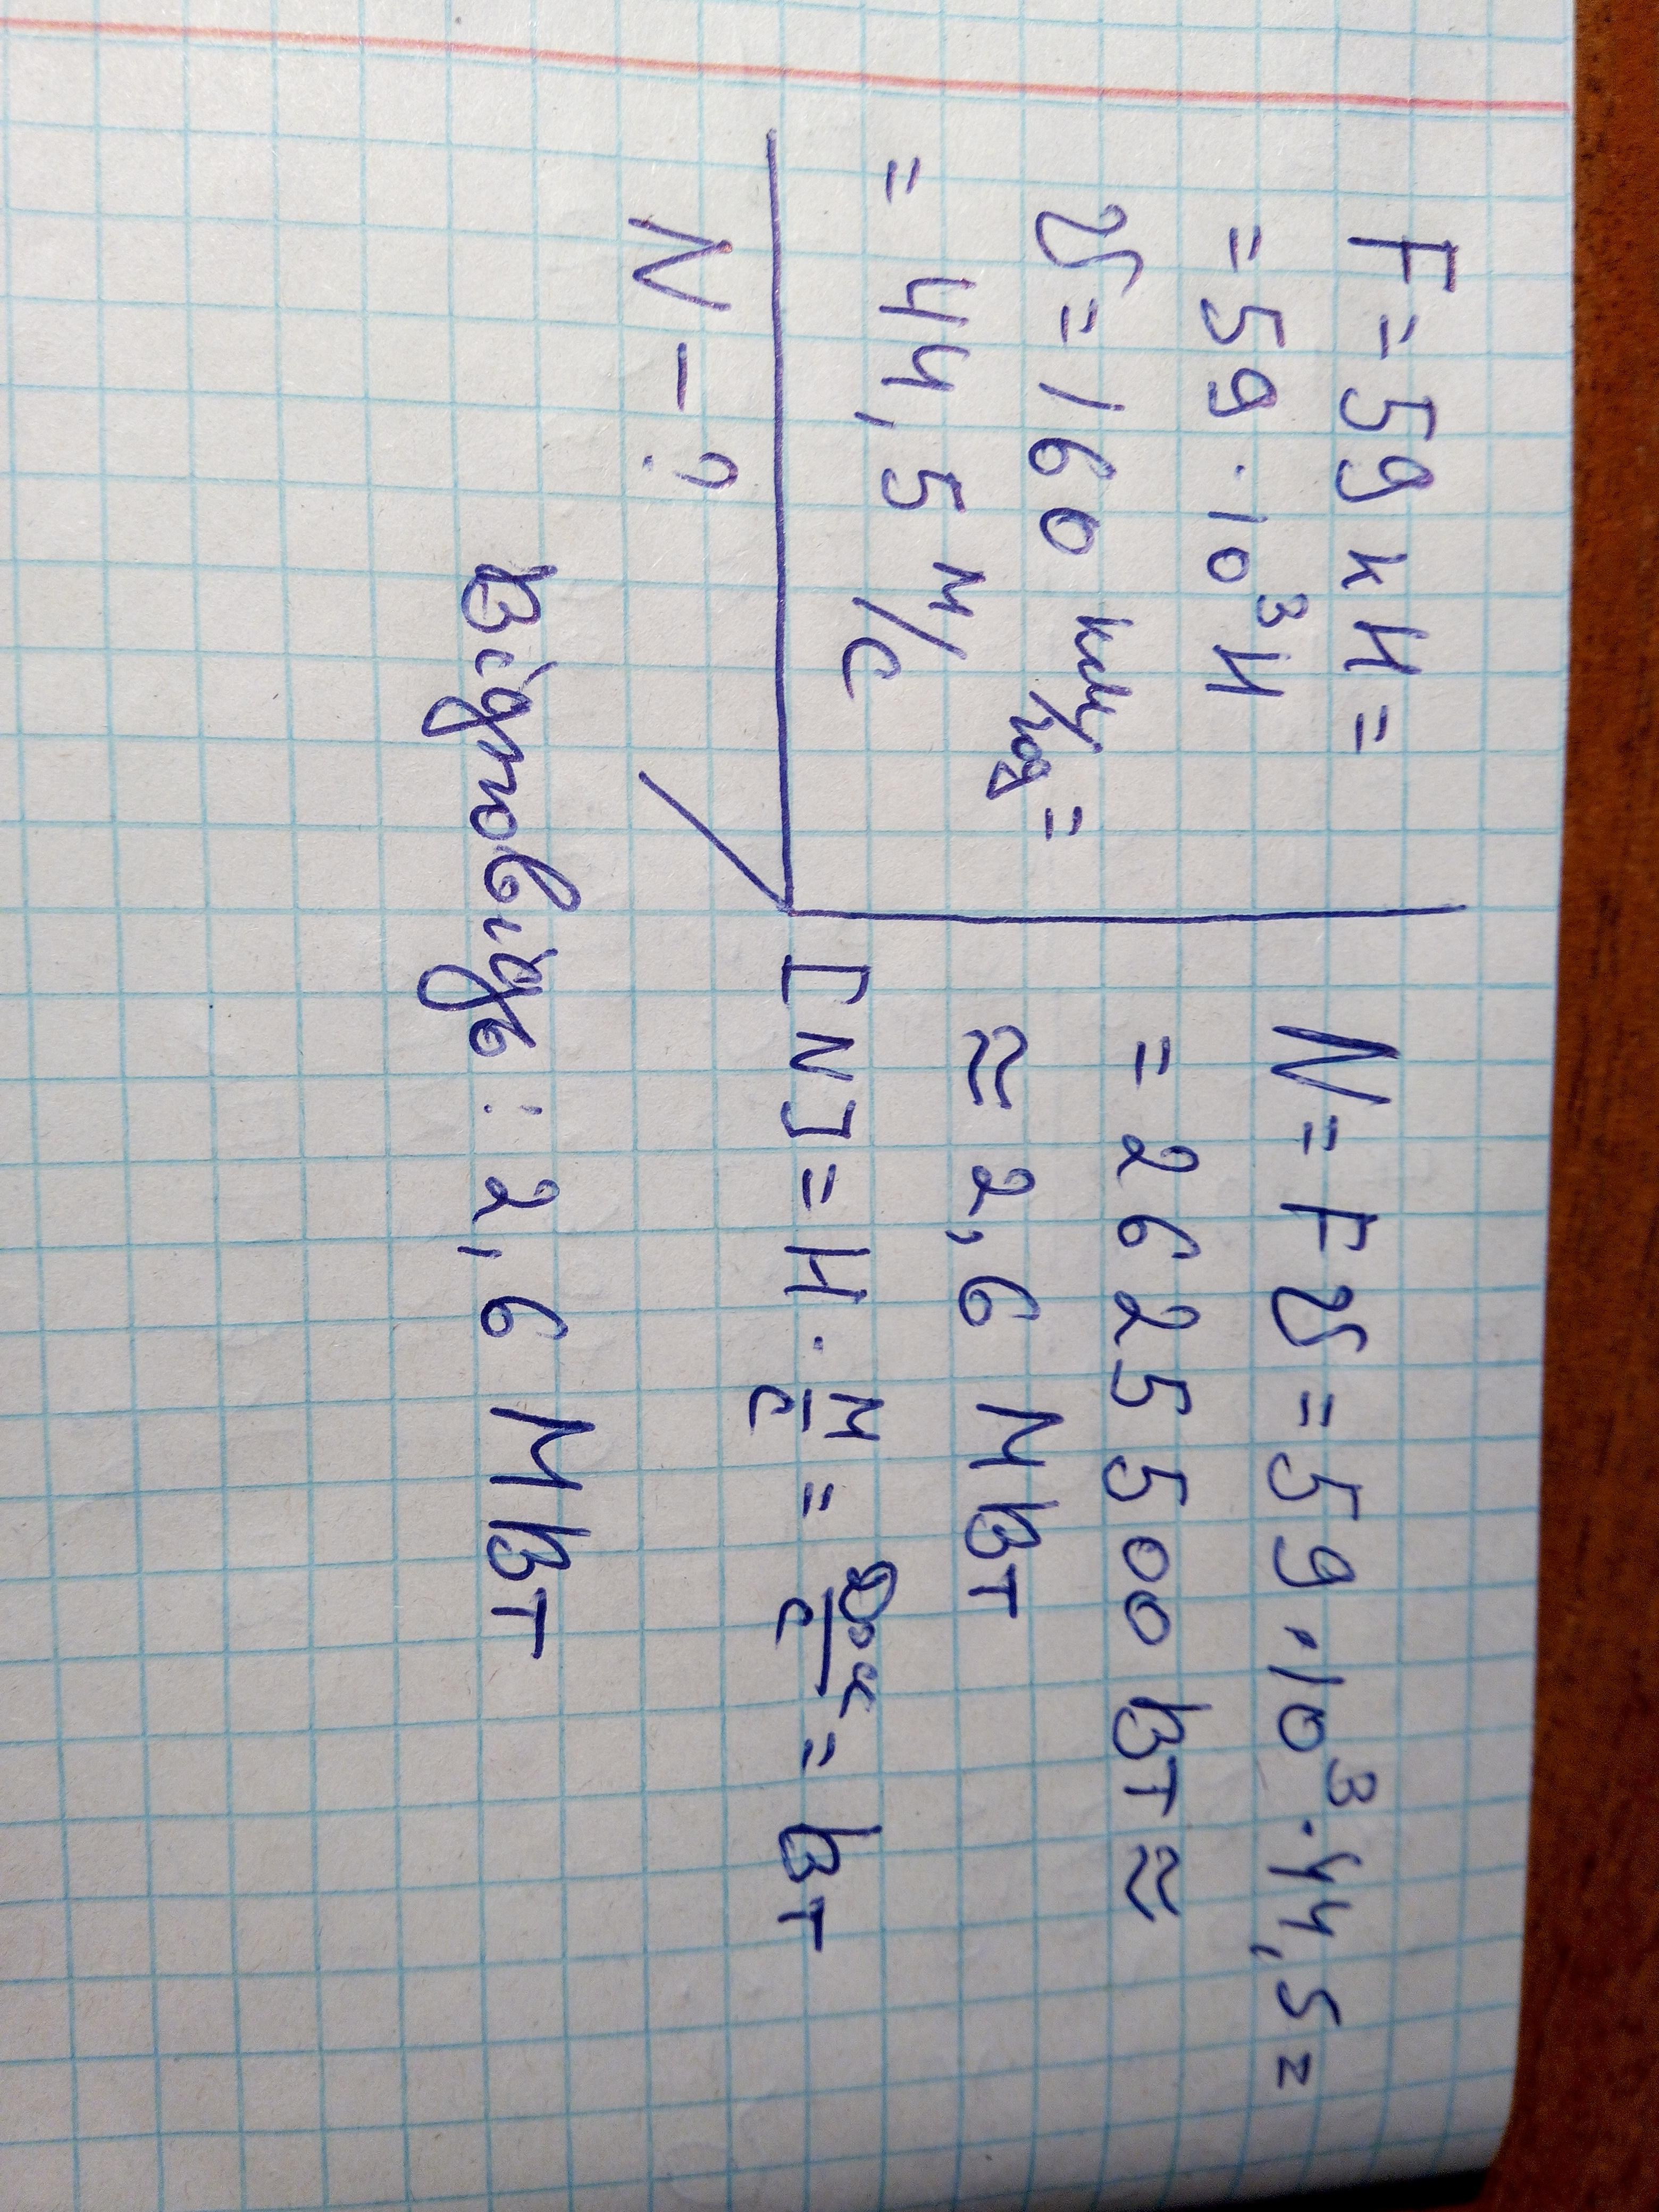 F = 59 кН =
= 59 · 10³ Н
υ = 160 км/год =
= 44,5 м/с
N - ?
N = Fυ = 59 · 10³ · 44,5 =
= 2625500 Вт ≈
≈ 2,6 МВт
[N] = Н · м/с = Дж/с = Вт
Відповідь: 2,6 МВт